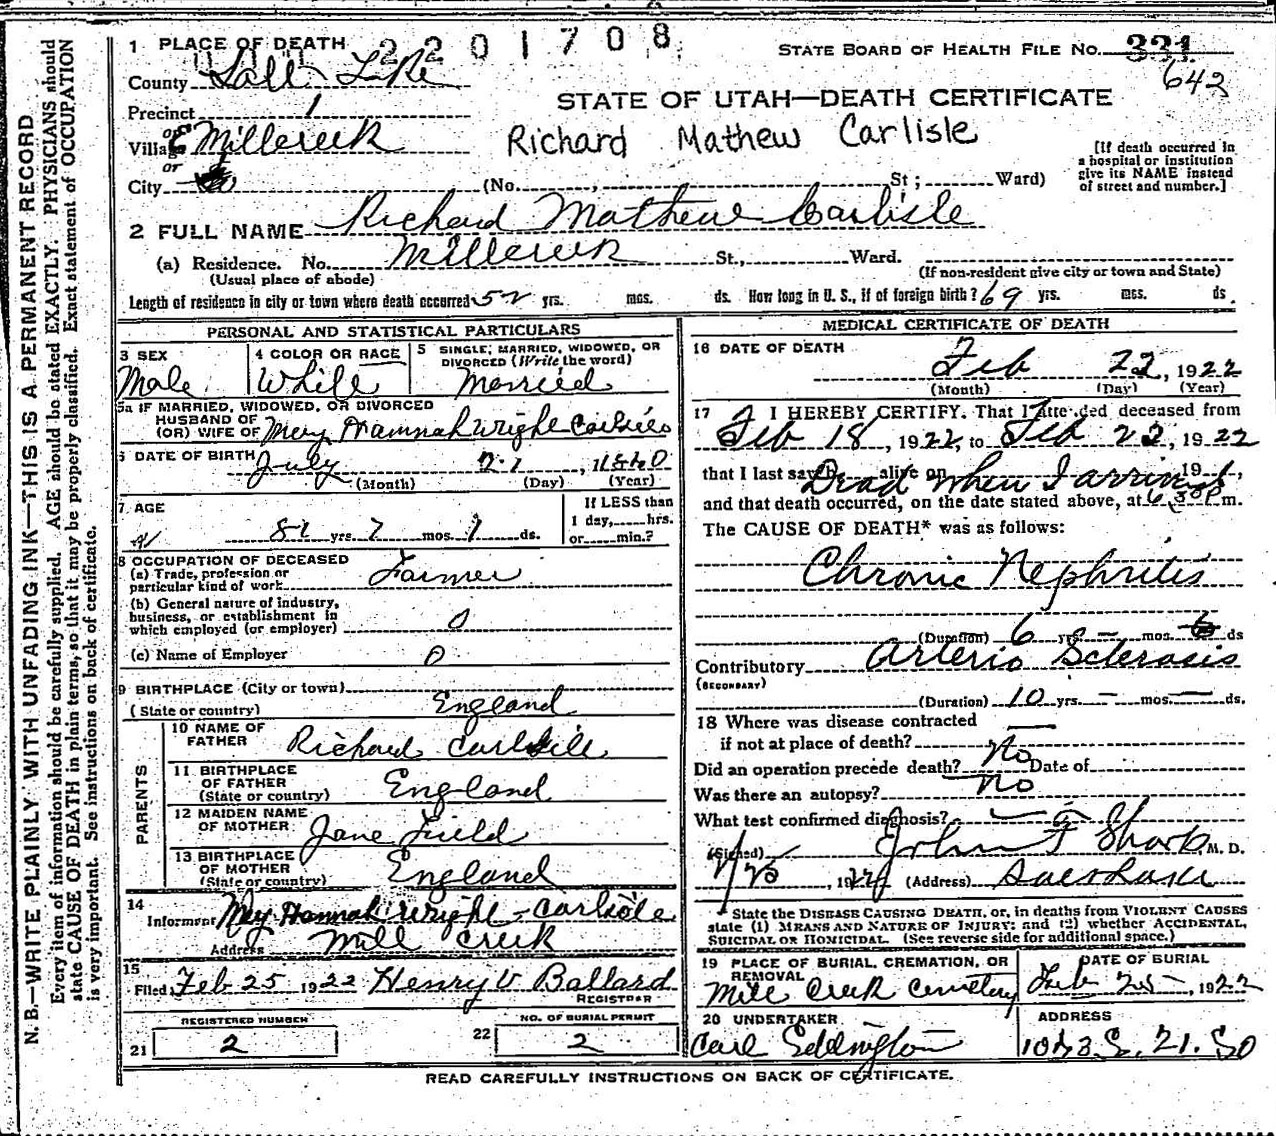 2201708
1 PLACE OF DEATH
STATE BOARD OF HEALTH FILE NO. 331
642
County Salt Lake
STATE OF UTAH—DEATH CERTIFICATE
Precinct 1
or
Village E Millcreek
Richard Mathew Carlisle
[If death occurred in a hospital or institution give its NAME instead of street and number.]
or
City (No. , St; Ward)
2 FULL NAME Richard Mathew Carlisle
(a) Residence. No. Millcreek St., Ward.
(Usual place of abode) (If non-resident give city or town and State)
Length of residence in city or town where death occurred 52 yrs. mos. ds. How long in U. S., if of foreign birth? 69 yrs. mos. ds.
PERSONAL AND STATISTICAL PARTICULARS
3 SEX
Male
4 COLOR OR RACE
White
5 SINGLE, MARRIED, WIDOWED, OR DIVORCED (Write the word)
Married
5a IF MARRIED, WIDOWED, OR DIVORCED
HUSBAND OF
(OR) WIFE OF Mary Hannah Wright Carlisle
6 DATE OF BIRTH July 21, 18
(Month) (Day) (Year)
7 AGE
81 yrs. 7 mos. 1 ds.
If LESS than
1 day, hrs.
or min.?
8 OCCUPATION OF DECEASED
(a) Trade, profession or
particular kind of work Farmer
(b) General nature of industry,
business, or establishment in
which employed (or employer) 0
(c) Name of Employer 0
9 BIRTHPLACE (City or town)
(State or country) England
PARENTS
10 NAME OF
FATHER Richard Carlisle
11 BIRTHPLACE
OF FATHER
(State or country) England
12 MAIDEN NAME
OF MOTHER Jane Field
13 BIRTHPLACE
OF MOTHER
(State or country) England
14
Informant Mary Hannah Wright-Carlisle
Address Mill Creek
15
Filed Feb 25 1922 Henry V Ballard
REGISTRAR
REGISTERED NUMBER
21 2
NO. OF BURIAL PERMIT
22 2
MEDICAL CERTIFICATE OF DEATH
16 DATE OF DEATH
Feb 22, 1922
(Month) (Day) (Year)
17 I HEREBY CERTIFY, That I attended deceased from
Feb 18, 1922, to Feb 22, 1922
that I last saw h alive on 19 ,
Dead when I arrived
and that death occurred, on the date stated above, at 6:30 p m.
The CAUSE OF DEATH* was as follows:
Chronic Nephritis
(Duration) 6 yrs. – mos. ds
Contributory Arterio Sclerosis
(SECONDARY)
(Duration) 10 yrs. – mos. — ds.
18 Where was disease contracted
if not at place of death?
Did an operation precede death? No Date of
Was there an autopsy? No
What test confirmed diagnosis?
(Signed) John F Sharp, M. D.
, 192 (Address)
* State the DISEASE CAUSING DEATH, or, in deaths from VIOLENT CAUSES
state (1) MEANS AND NATURE OF INJURY; and (2) whether ACCIDENTAL,
SUICIDAL OR HOMICIDAL. (See reverse side for additional space.)
19 PLACE OF BURIAL, CREMATION, OR
REMOVAL
Mill Creek Cemetary
DATE OF BURIAL
Feb 25, 1922
20 UNDERTAKER
Carl Eddington
ADDRESS
S. 21. So
READ CAREFULLY INSTRUCTIONS ON BACK OF CERTIFICATE.
N. B.—WRITE PLAINLY WITH UNFADING INK—THIS IS A PERMANENT RECORD
Every item of information should be carefully supplied. AGE should be stated EXACTLY. PHYSICIANS should
state CAUSE OF DEATH in plain terms, so that it may be properly classified. Exact statement of OCCUPATION
is very important. See instructions on back of certificate.